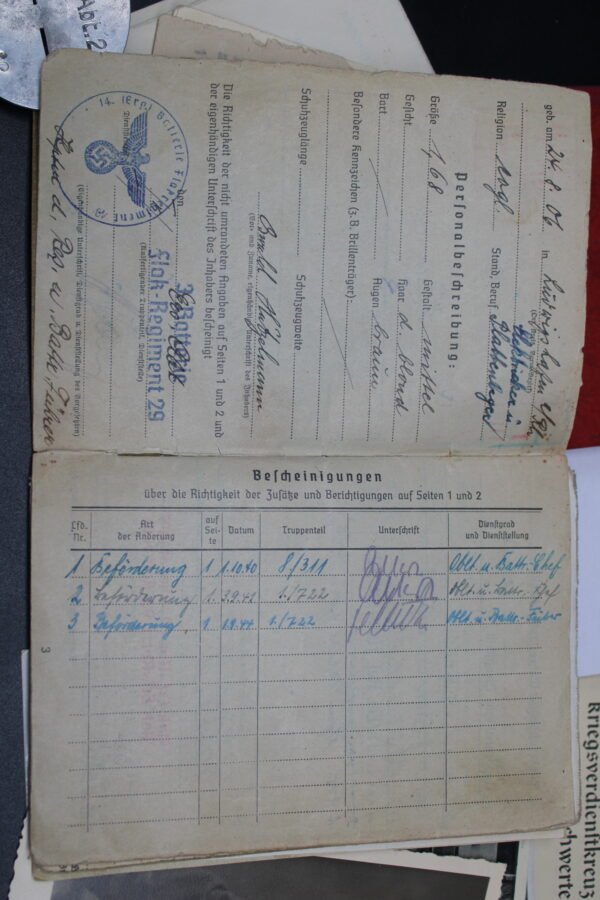 geb. am 24.8.06 in Ludwigshafen a/Rh
Religion evgl. Stand, Beruf
Plattenleger
Personalbeschreibung:
Größe 1,68 Gestalt mittel
Gesicht Haar d. blond
Bart Augen braun
Besondere Kennzeichen (z. B. Brillenträger):
Schuhzeuglänge Schuhzeugweite
(Vor- und Zuname, eigenhändige Unterschrift des Inhabers)
Die Richtigkeit der nicht umrandeten Angaben auf Seiten 1 und 2 und
der eigenhändigen Unterschrift des Inhabers bescheinigt
den
14. (Erg.) Batterie Flakregiment
Flak-Regiment 29
(Ausfertigender Truppenteil, Dienststelle)
d. Res. u. Battr. Führer
(Eigenhändige Unterschrift, Dienstgrad u. Dienststellung des Vorgesetzten)
Bescheinigungen
über die Richtigkeit der Zusätze und Berichtigungen auf Seiten 1 und 2
Lfd. Nr. Art der Änderung auf Seite Datum Truppenteil Unterschrift Dienstgrad und Dienststellung
1 Beförderung 1 1.10.40 8/311 Oblt. u. Battr.-Chef
2 Beförderung 1. 3.9.41 1./722 Oblt. u. Battr. Chef
3 Beförderung 1 1.9.44 1./722 Oblt. u. Battr.-Führer
3
Abt.2
Kriegsverdienstkreuz